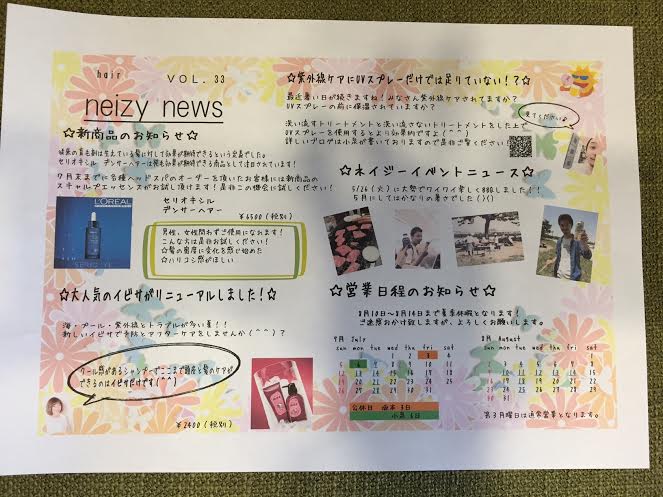 hair
VOL. 33
neizy news
☆新商品のお知らせ☆
従来の育毛剤は生えている髪に対して効果が期待できるという定義でした。
セリオキシル デンサーヘアーは発毛効果が期待できる商品として注目されています!
9月末までに各種ヘッドスパのオーダーを頂いたお客様には新商品の
スキャルプエッセンスがお試し頂けます!是非この機会に試しください!
L'ORÉAL
セリオキシル
デンサーヘアー
¥6500(税別)
男性、女性問わずご使用になれます!
こんな方は是非お試しください!
☆髪の密度に変化を感じ始めた
☆ハリコシ感がほしい
☆大人気のイビサがリニューアルしました!☆
海・プール・紫外線とトラブルが多い夏!!
新しいイビサで予防とアフターケアをしませんか(^^)?
クール感があるシャンプーでここまで頭皮と髪のケアが
できるのはイビサだけです!(^^)
¥2400(税別)
☆紫外線ケアにUVスプレーだけでは足りていない!?☆
最近暑い日が続きますね!みなさん紫外線ケアされてますか?
UVスプレーの前に保湿されていますか?
洗い流すトリートメントと洗い流さないトリートメントをした上で
UVスプレーを使用するとより効果的ですよ(^^)
詳しいブログは小泉が書いておりますので是非ご覧ください!
見てくださいね
☆ネイジーイベントニュース☆
5/26(火)に大勢でワイワイ楽しくBBQしました!!
5月にしてはかなりの暑さでした()()
☆営業日程のお知らせ☆
8月10日〜8月14日まで夏季休暇となります!
ご迷惑おかけ致しますが、よろしくお願いします。
7月 July
sun mon tue wed thu fri sat
1 2 3 4
5 6 7 8 9 10 11
12 13 14 15 16 17 18
19 20 21 22 23 24 25
26 27 28 29 30 31
公休日 3日
小泉 6日
8月 August
sun mon tue wed thu fri sat
1
2 3 4 5 6 7 8
9 10 11 12 13 14 15
16 17 18 19 20 21 22
23 24 25 26 27 28 29
30 31
第3月曜日は通常営業となります。